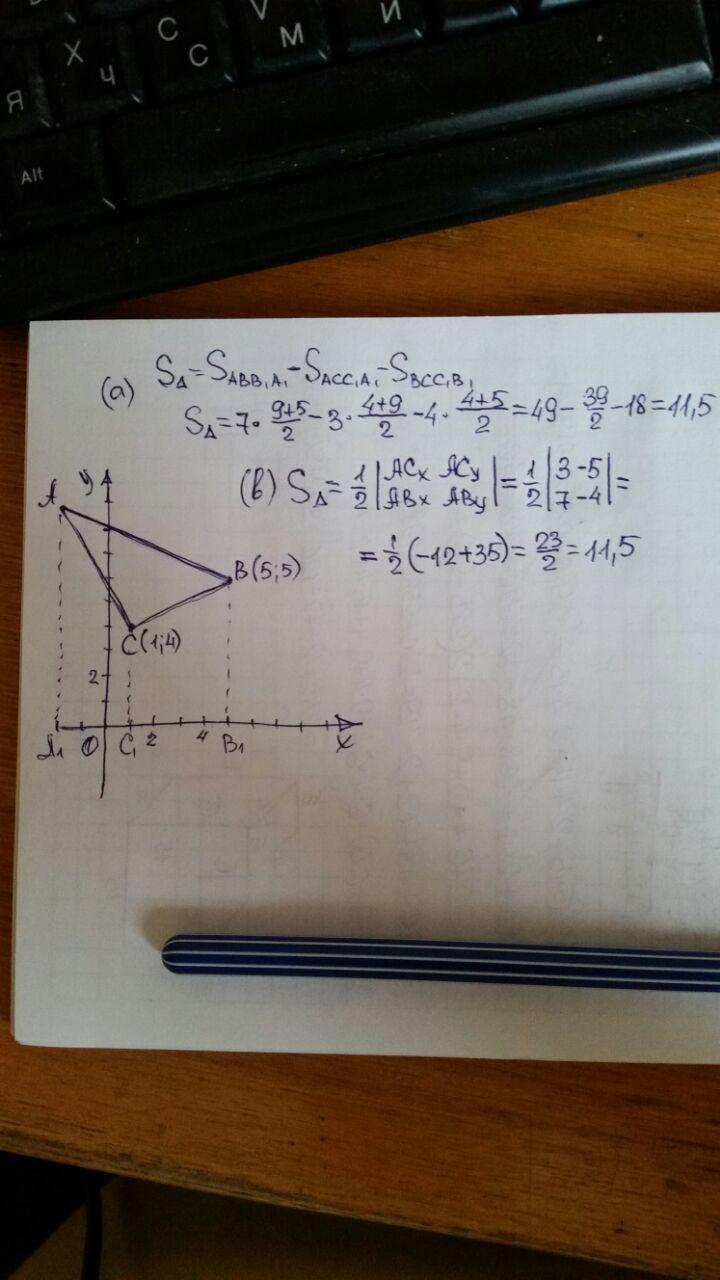 С V И
Х С М
Я Ч
Alt
(a) S△=SABB₁A₁-SACC₁A₁-SBCC₁B₁
S△=7·(9+5)/2-3·(4+9)/2-4·(4+5)/2=49-39/2-18=11,5
(b) S△=1/2|ACx ACy; ABx ABy|=1/2|3 -5; 7 -4|=
=1/2(-12+35)=23/2=11,5
y
A
B(5;5)
C(1;4)
2
A₁ O C₁ 2 4 B₁ x